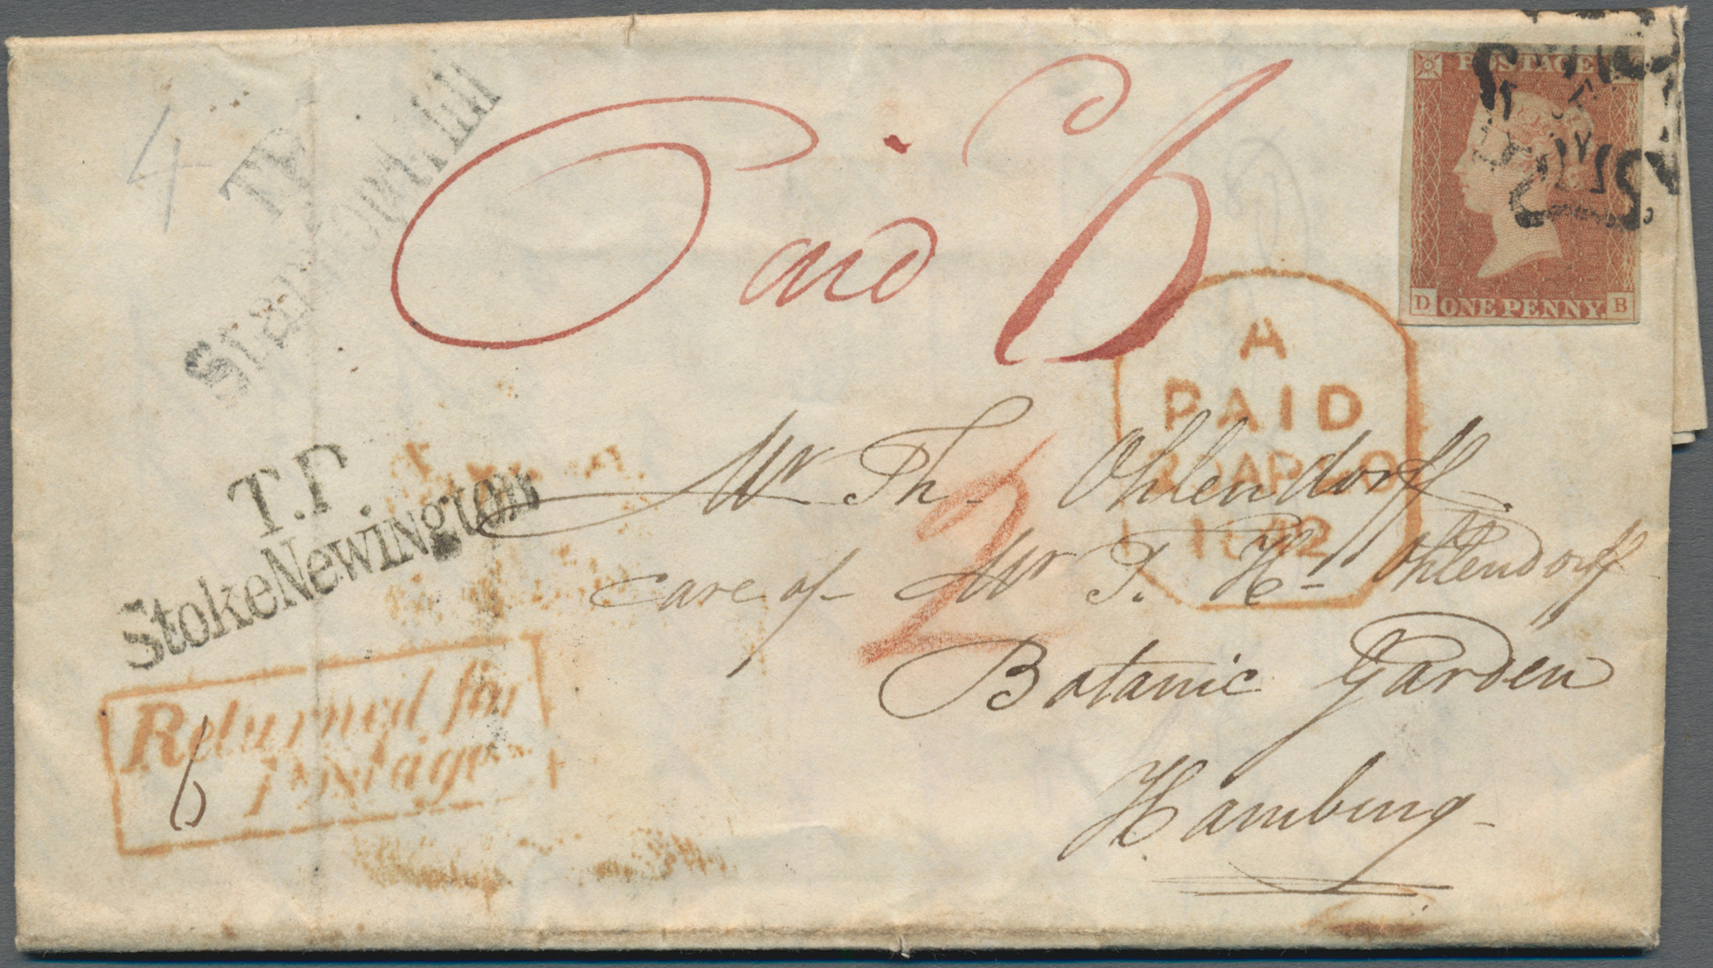 4
T.P.
Stamford Hill
Paid 6
POSTAGE
D ONE PENNY B
A
PAID
AP
1842
T.P.
Stoke Newington
Mr Th. Ohlendorff.
care of Mr T. Hn Ohlendorff
2
Botanic Garden
Hamburg
Returned for
Postage
6